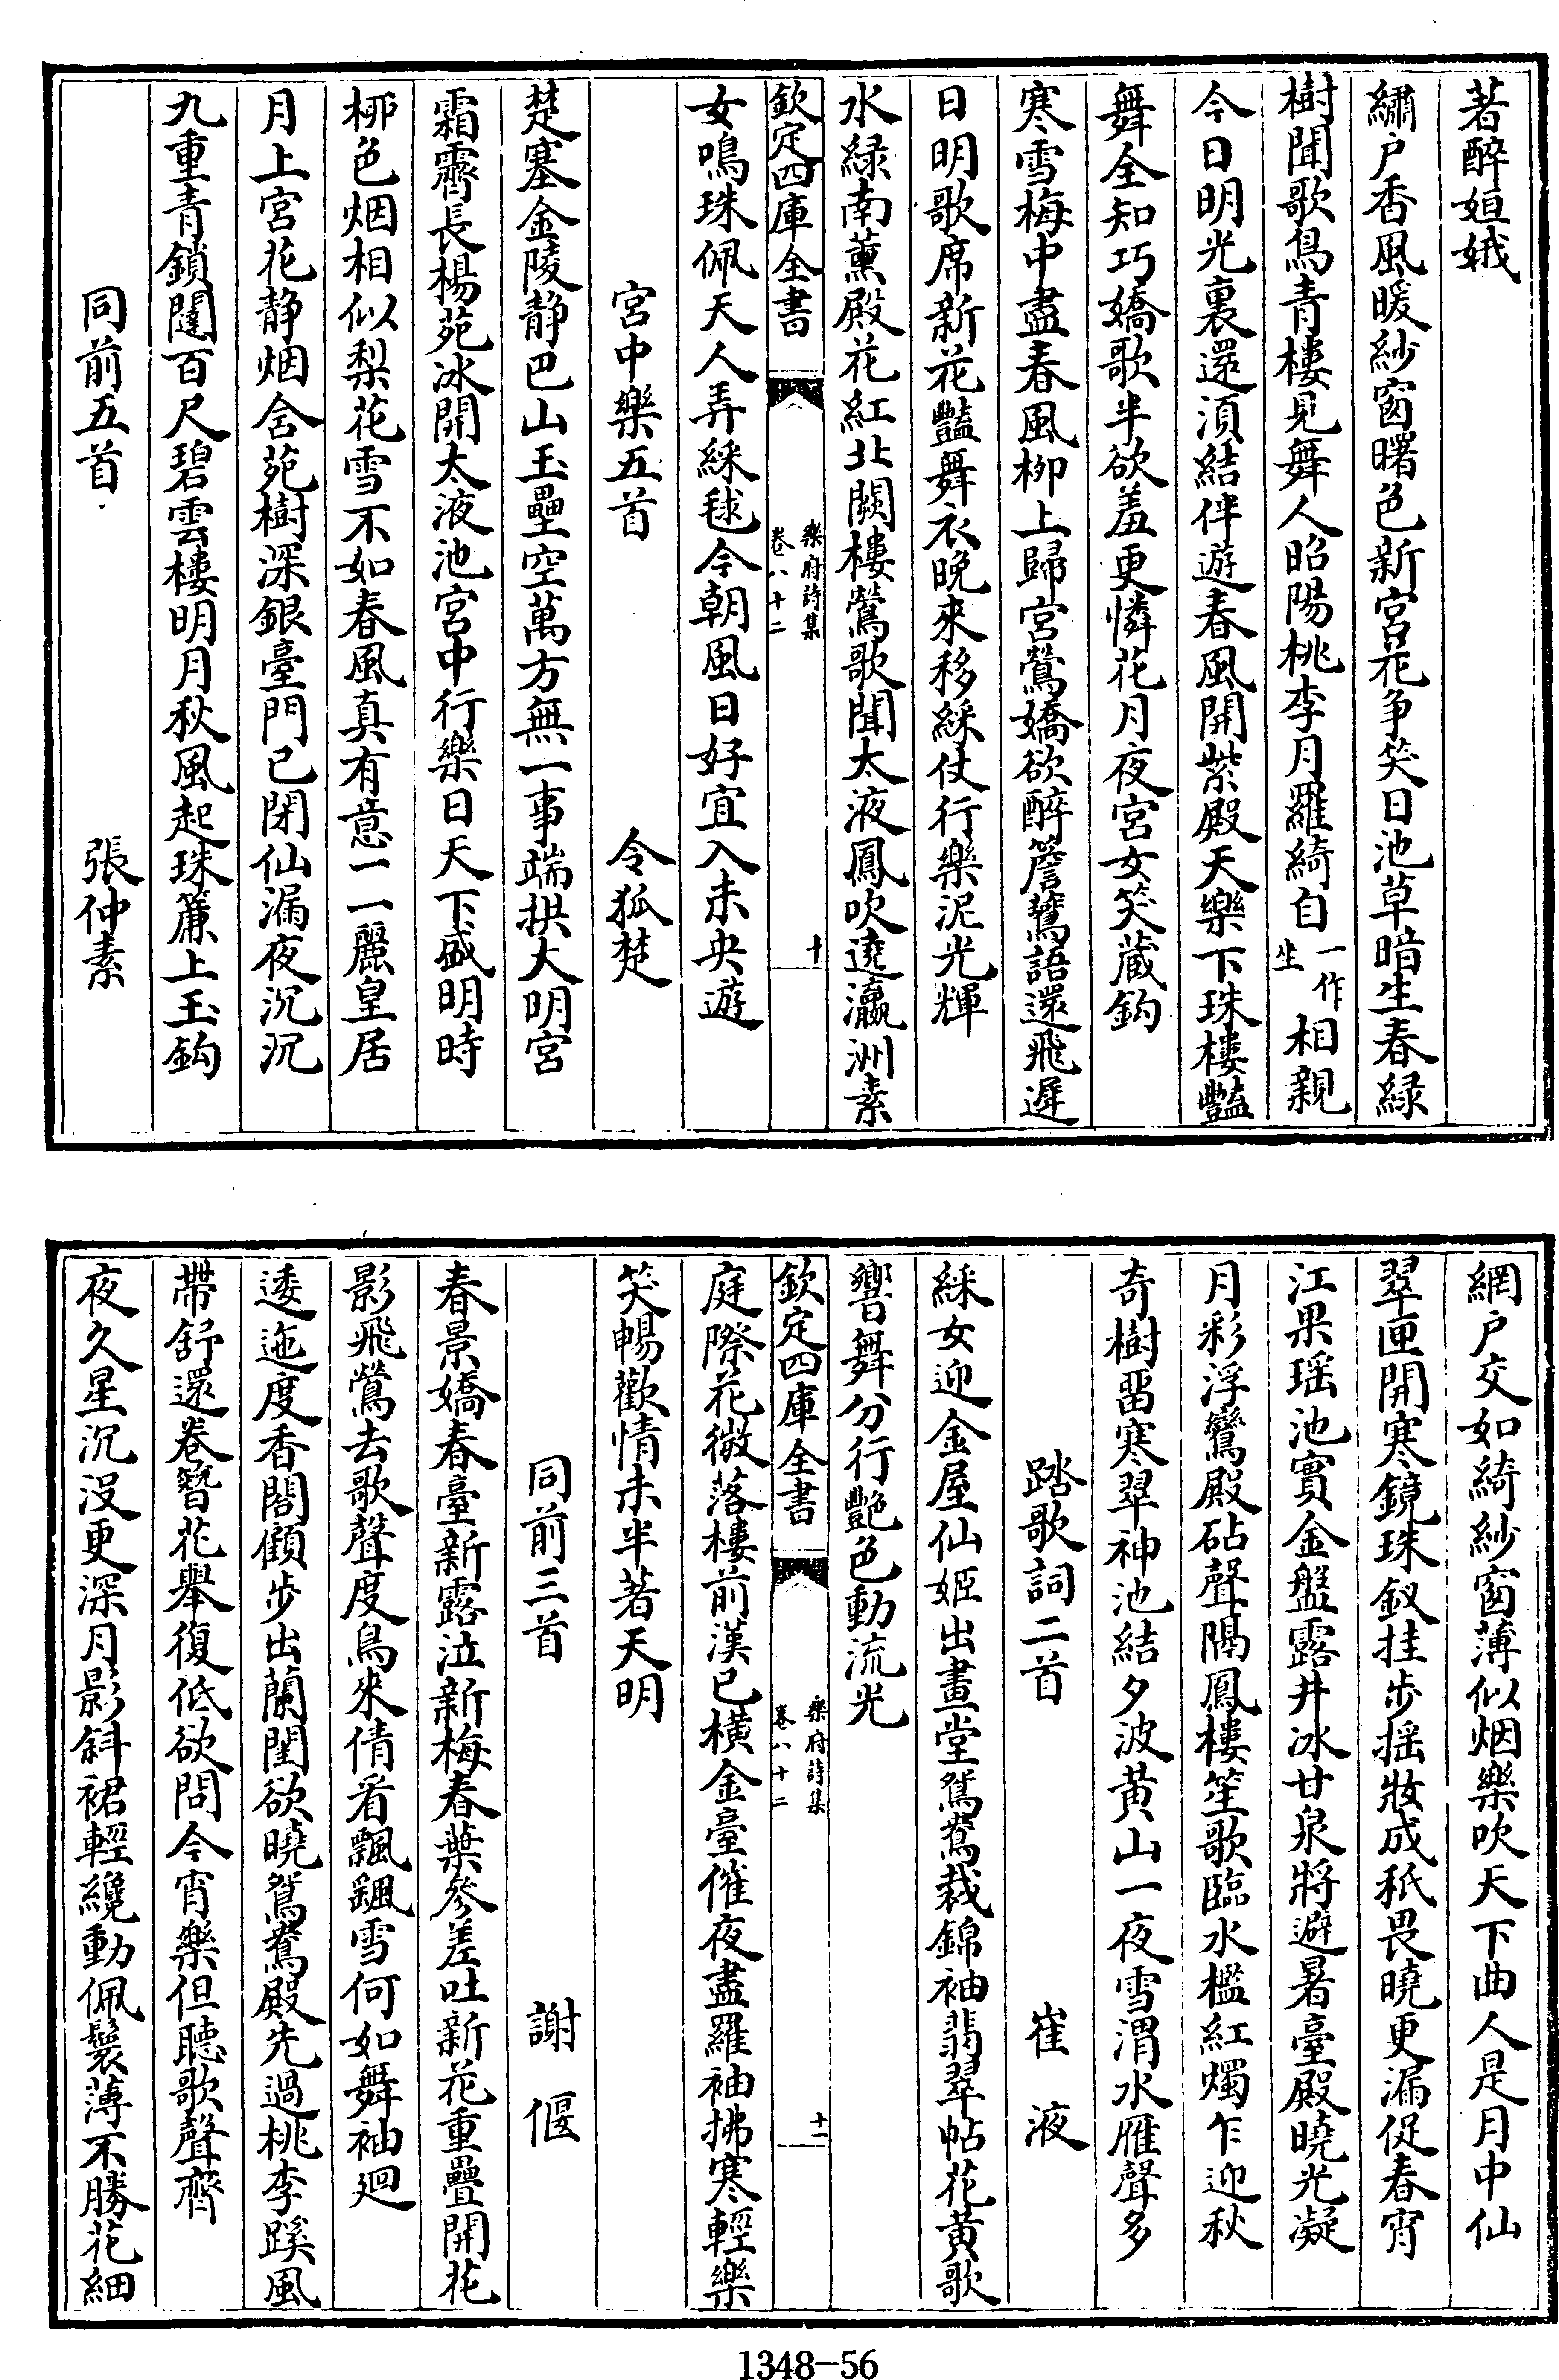 著醉姮娥
繡户香風暖紗窗曙色新宫花争笑日池草暗生春緑
樹聞歌鳥青樓見舞人昭陽桃李月羅綺自一作坐相親
今日明光裏還須結伴遊春風開紫殿天樂下珠樓豔
舞全知巧嬌歌半欲羞更憐花月夜宫女笑藏鈎
寒雪梅中盡春風柳上歸宫鶯嬌欲醉簷鷰語還飛遲
日明歌席新花豔舞衣晚來移綵仗行樂泥光輝
水緑南薰殿花紅北闕樓鶯歌聞太液鳳吹遶瀛洲素
欽定四庫全書
樂府詩集
卷八十二
十
女鳴珠佩天人弄綵毬今朝風日好宜入未央遊
宫中樂五首 令狐楚
楚塞金陵静巴山玉壘空萬方無一事端拱大明宫
霜霽長楊苑冰開太液池宫中行樂日天下盛明時
栁色烟相似梨花雪不如春風真有意一一麗皇居
月上宫花静烟含苑樹深銀臺門已閉仙漏夜沉沉
九重青鎖闥百尺碧雲樓明月秋風起珠簾上玉鈎
同前五首 張仲素
網户交如綺紗窗薄似烟樂吹天下曲人是月中仙
翠匣開寒鏡珠釵挂步揺妝成秖畏曉更漏促春宵
江果瑶池實金盤露井冰甘泉將避暑臺殿曉光凝
月彩浮鸞殿砧聲隔鳳樓笙歌臨水檻紅燭乍迎秋
奇樹留寒翠神池結夕波黄山一夜雪渭水雁聲多
踏歌詞二首 崔液
綵女迎金屋仙姬出畫堂鴛鴦裁錦袖翡翠帖花黄歌
響舞分行艷色動流光
欽定四庫全書
樂府詩集
卷八十二
十一
庭際花微落樓前漢已横金臺催夜盡羅袖拂寒輕樂
笑暢歡情未半著天明
同前三首 謝偃
春景嬌春臺新露泣新梅春葉參差吐新花重疊開花
影飛鶯去歌聲度鳥來倩看飄颻雪何如舞袖廻
逶迤度香閣顧步出蘭閨欲曉鴛鴦殿先過桃李蹊風
帶舒還卷簪花舉復低欲問今宵樂但聽歌聲齊
夜久星沉沒更深月影斜裙輕纔動佩鬟薄不勝花細
1348-56